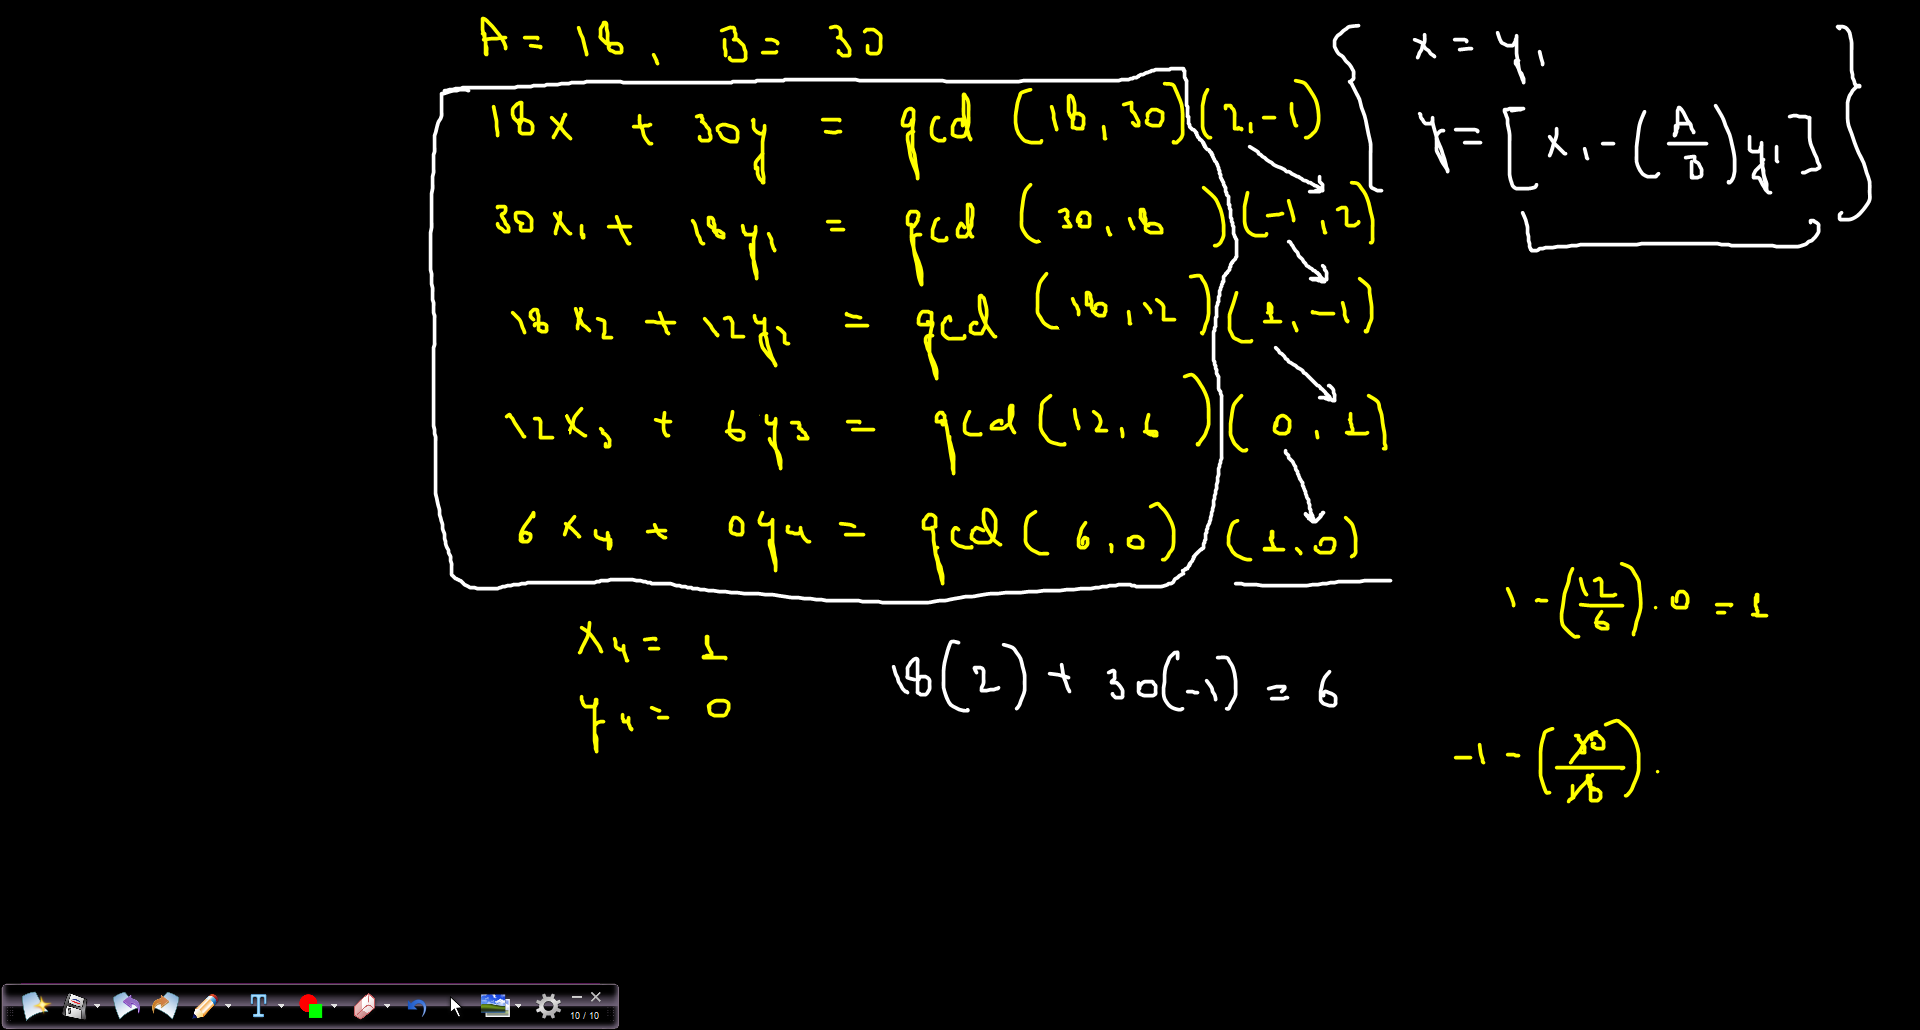 A = 18, B = 30
18x + 30y = gcd (18, 30) (2, -1)
30x₁ + 18y₁ = gcd (30, 18) (-1, 2)
18x₂ + 12y₂ = gcd (18, 12) (1, -1)
12x₃ + 6y₃ = gcd (12, 6) (0, 1)
6x₄ + 0y₄ = gcd (6, 0) (1, 0)
x₄ = 1
y₄ = 0
18(2) + 30(-1) = 6
x = y₁
y = [x₁ - (A/B)y₁]
1 - (12/6) . 0 = 1
-1 - (30/18) .
T
10 / 10